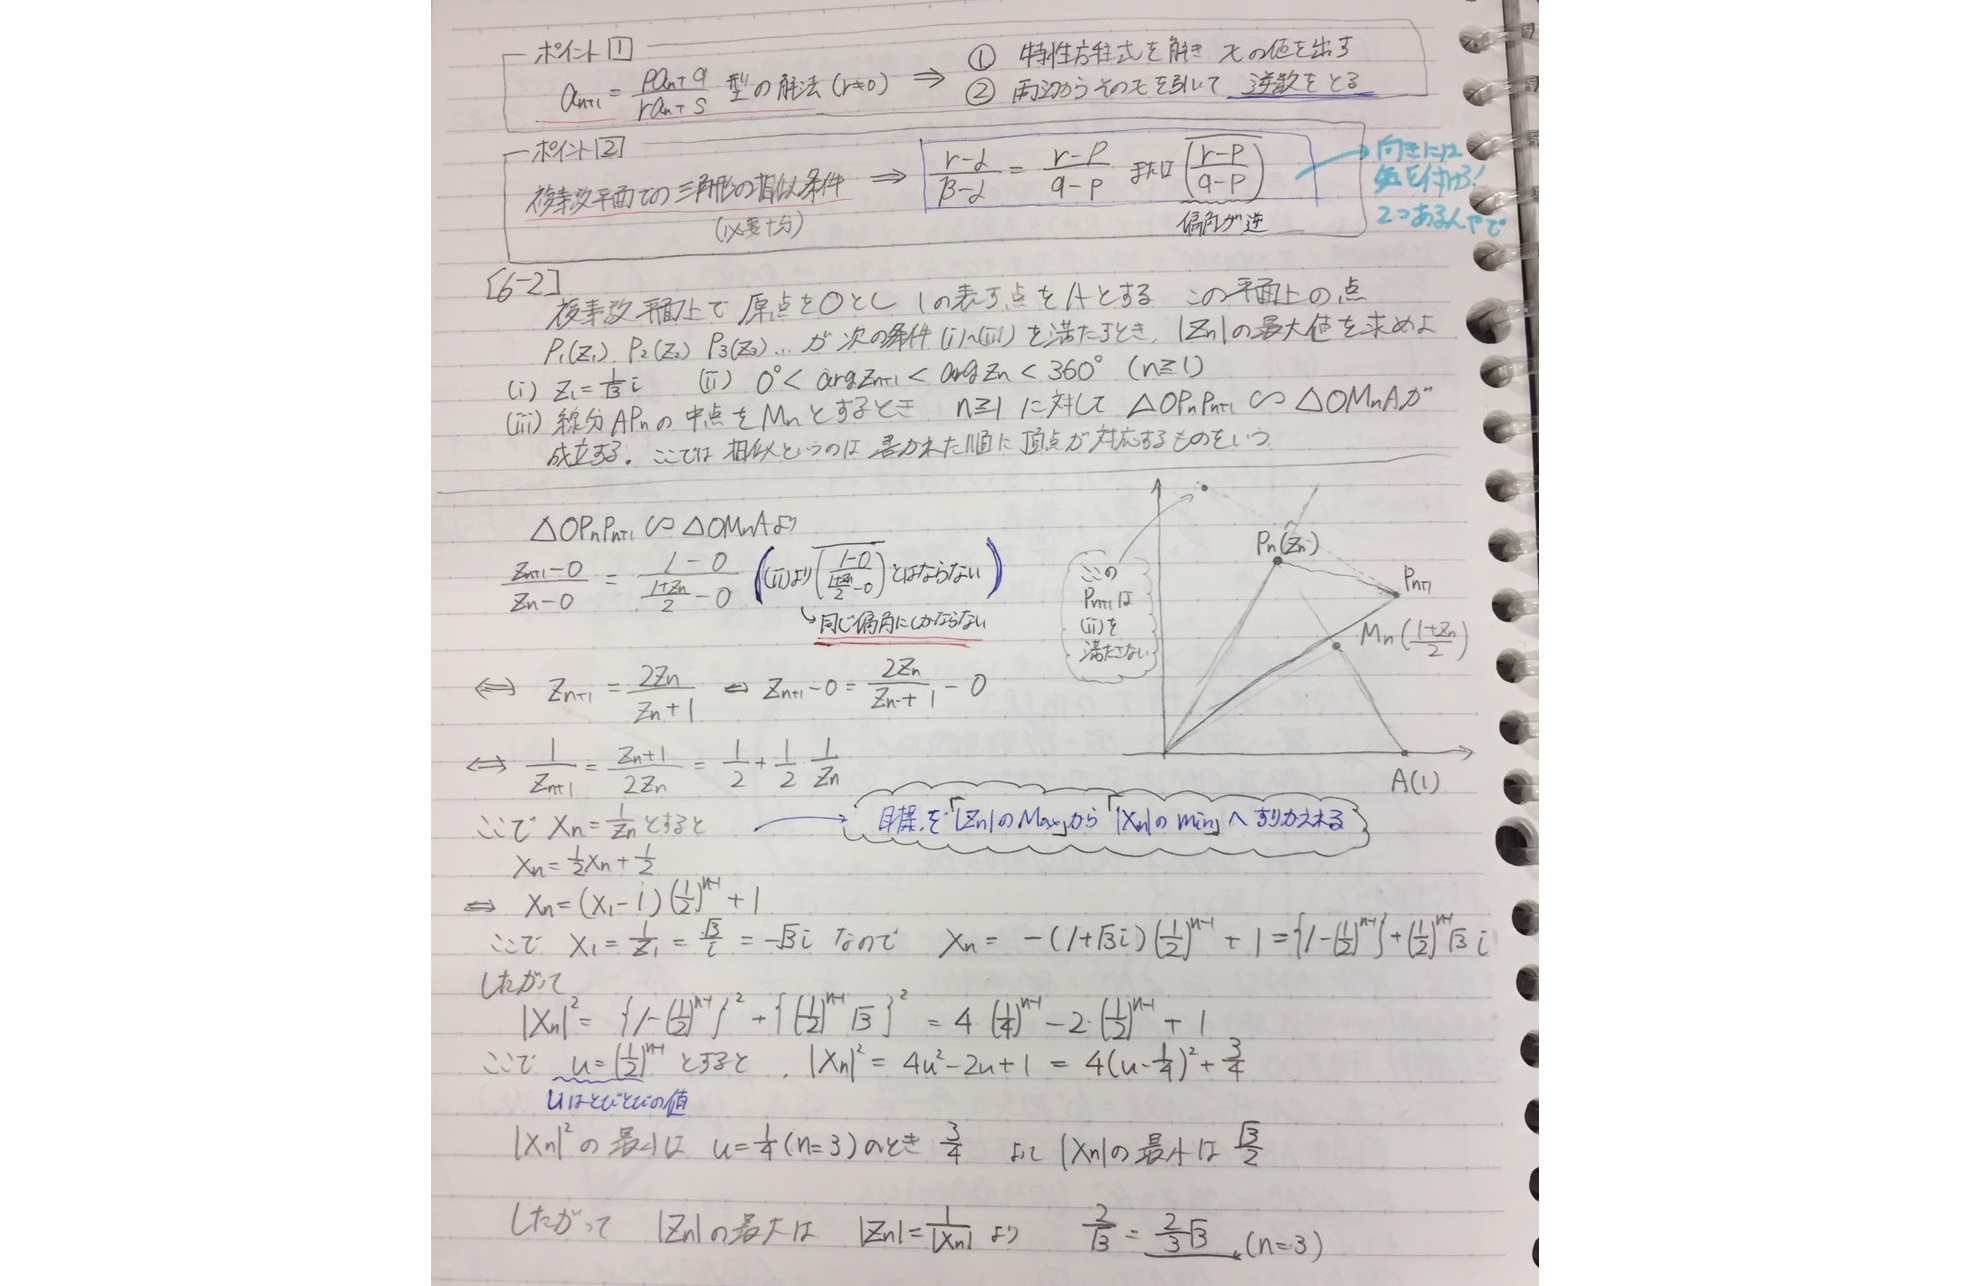 ポイント1
a_{n+1} = \frac{pa_n+q}{ra_n+s} 型の解法 (r≠0) ⇒ ① 特性方程式を解き xの値を出す
② 両辺からそのxを引いて 逆数をとる
ポイント2
複素数平面での三角形の相似条件 (必要十分) ⇒ \frac{r-α}{β-α} = \frac{r-p}{q-p} または \overline{(\frac{r-p}{q-p})}
偏角が逆
向きには
気を付ける!
2つあるんやで
[6-2]
複素数平面上で 原点をOとし 1の表す点をAとする この平面上の点
P_1(z_1) P_2(z_2) P_3(z_3)... が 次の条件(i)~(iii)を満たすとき, |z_n|の最大値を求めよ
(i) z_1 = \frac{1}{√3}i (ii) 0°< arg z_{n+1} < arg z_n < 360° (n≧1)
(iii) 線分AP_nの中点をM_nとするとき n≧1に対して △OP_nP_{n+1} ∽ △OM_nAが
成立する. ここでは 相似というのは 書かれた順に頂点が対応するものをいう
△OP_nP_{n+1} ∽ △OM_nAより
\frac{z_{n+1}-0}{z_n-0} = \frac{1-0}{\frac{1+z_n}{2}-0} ((ii)より \overline{(\frac{1-0}{\frac{1+z_n}{2}-0})} とはならない)
同じ偏角にしかならない
⇔ z_{n+1} = \frac{2z_n}{z_n+1} ⇔ z_{n+1}-0 = \frac{2z_n}{z_n+1}-0
⇔ \frac{1}{z_{n+1}} = \frac{z_n+1}{2z_n} = \frac{1}{2}+\frac{1}{2}·\frac{1}{z_n}
ここで x_n = \frac{1}{z_n} とすると
目標を「|z_n|のMax」から「|x_n|のmin」へすりかえれる
x_n = \frac{1}{2}x_n + \frac{1}{2}
⇔ x_n = (x_1-1)(\frac{1}{2})^{n-1}+1
ここで x_1 = \frac{1}{z_1} = \frac{√3}{i} = -√3i なので x_n = -(1+√3i)(\frac{1}{2})^{n-1}+1 = {1-(\frac{1}{2})^{n-1}}+(\frac{1}{2})^{n-1}√3 i
したがって
|x_n|^2 = {1-(\frac{1}{2})^{n-1}}^2 + {(\frac{1}{2})^{n-1}√3}^2 = 4·(\frac{1}{4})^{n-1} - 2·(\frac{1}{2})^{n-1} + 1
ここで u = (\frac{1}{2})^{n-1} とすると, |x_n|^2 = 4u^2-2u+1 = 4(u-\frac{1}{4})^2+\frac{3}{4}
uはとびとびの値
|x_n|^2の最小は u=\frac{1}{4}(n=3)のとき \frac{3}{4} よって |x_n|の最小は \frac{√3}{2}
したがって |z_n|の最大は |z_n| = \frac{1}{|x_n|} より \frac{2}{√3} = \frac{2}{3}√3 (n=3)
P_n(z_n)
P_{n+1}
M_n(\frac{1+z_n}{2})
A(1)
この
P_{n+1}は
(ii)を
満たさない